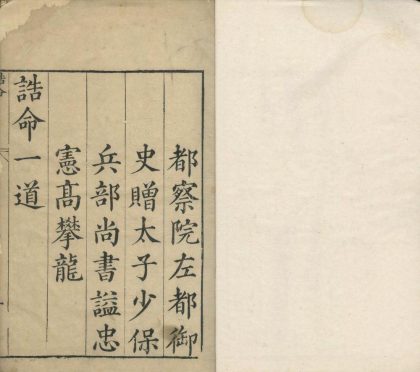 都察院左都御
史贈太子少保
兵部尚書諡忠
憲高攀龍
誥命一道